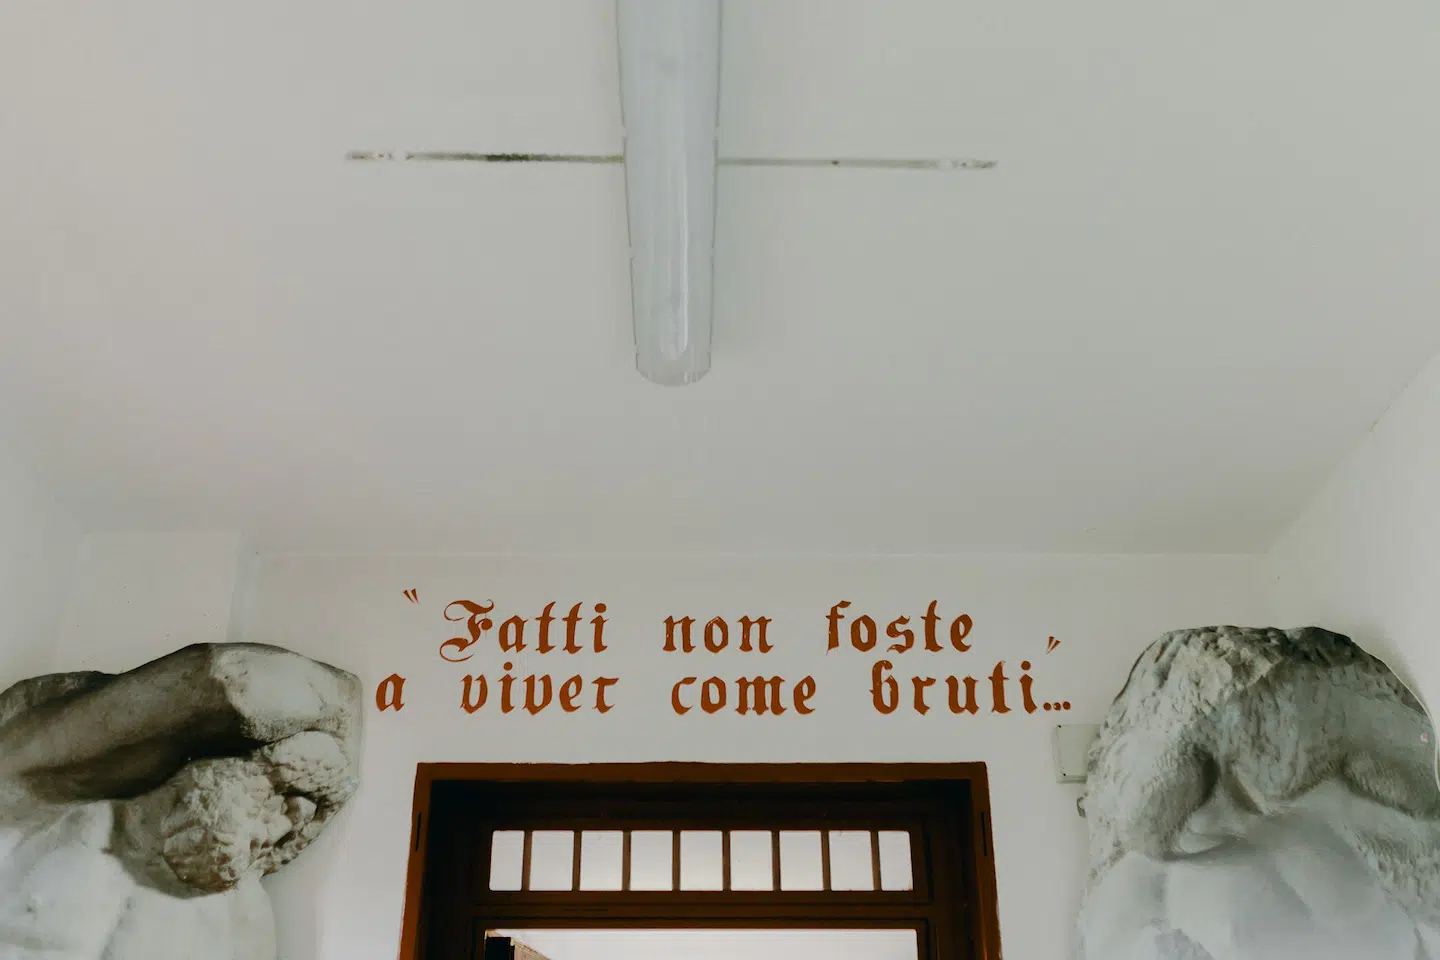 "Fatti non foste
a viver come bruti"...